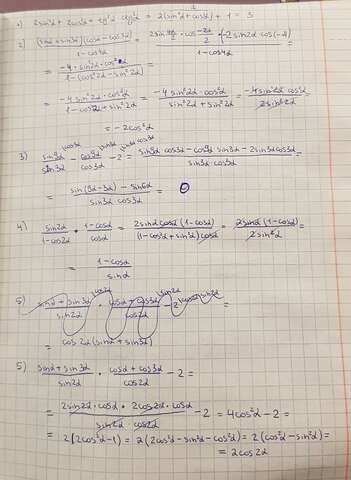 1) 2sin²α + 2cos²α + tgα · ctgα = 2(sin²α + cos²α) + 1 = 3
2) (sinα + sin3α)(cosα − cos3α) / (1 − cos4α) = 2sin 4α/2 · cos −2α/2 · (−2 sin2α cos(−α)) / (1 − cos4α) =
= −4 · sin²2α · cos²α / (1 − (cos²2α − sin²2α)) =
= −4 sin²2α · cos²α / (1 − cos²2α + sin²2α) = −4 sin²2α · cos²α / (sin²2α + sin²2α) = −4 sin²2α cos²α / 2sin²2α =
= −2cos²α
3) sin / sin3α − / cos3α − 2 = / sin3α cos3α =
= sin(3α − 3α) − sin6α / sin3α cos3α = 0
4) sin2α / (1 − cos2α) · (1 − cosα) / cosα = 2sinα cosα (1 − cosα) / (1 − cos²α + sin²α) cosα = 2sinα (1 − cosα) / 2sin²α =
= (1 − cosα) / sinα
5) sinα + sin3α / sin2α · cosα + cos3α / cos2α − 2 =
= cos2α (sinα + sin3α)
5) (sinα + sin3α) / sin2α · (cosα + cos3α) / cos2α − 2 =
= 2sin2α · cosα · 2cos2α · cosα / sin2α · cos2α − 2 = 4cos²α − 2 =
= 2(2cos²α − 1) = 2(2cos²α − sin²α − cos²α) = 2(cos²α − sin²α) =
= 2cos2α